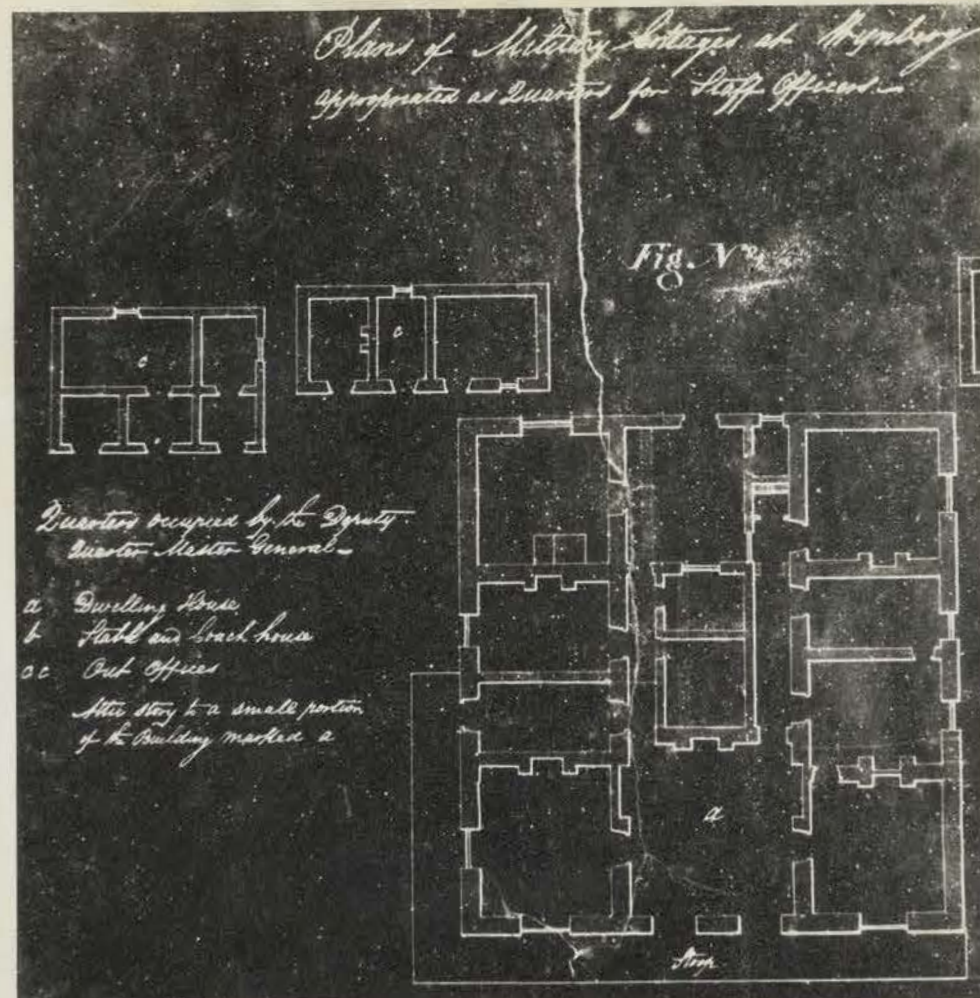 Plans of Military Cottages at Wynberg
appropriated as Quarters for Staff Officers.—
Fig. Nº
c
c
Quarters occupied by the Deputy
Quarter Master General—
a Dwelling House
b Stable and Coach house
cc Out Offices
Attic story to a small portion
of the Building marked a
a
Stoep